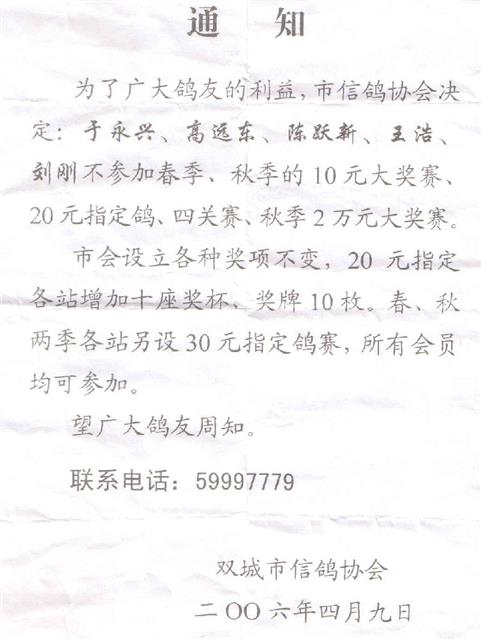 通 知
为了广大鸽友的利益,市信鸽协会决
定:于永兴、高远东、陈跃新、王浩、
刘刚不参加春季、秋季的10元大奖赛、
20元指定鸽、四关赛、秋季2万元大奖赛。
市会设立各种奖项不变,20 元指定
各站增加十座奖杯、奖牌10枚。春、秋
两季各站另设30元指定鸽赛,所有会员
均可参加。
望广大鸽友周知。
联系电话:59997779
双城市信鸽协会
二OO六年四月九日